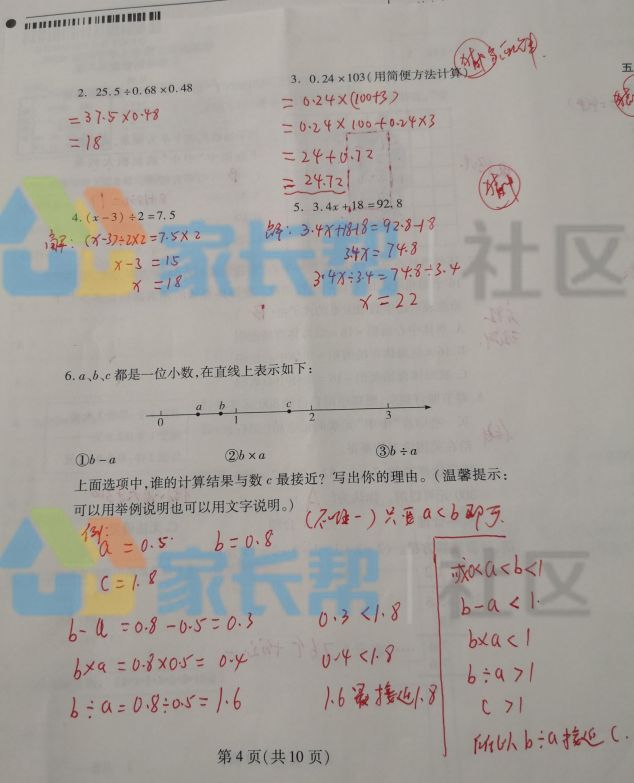 2. 25.5÷0.68×0.48
=37.5×0.48
=18
3. 0.24×103(用简便方法计算)
=0.24×(100+3)
=0.24×100+0.24×3
=24+0.72
=24.72
4.(x-3)÷2=7.5
解: (x-3)÷2×2=7.5×2
x-3=15
x=18
5. 3.4x+18=92.8
解: 3.4x+18-18=92.8-18
3.4x=74.8
3.4x÷3.4=74.8÷3.4
x=22
家长帮 社区
6. a、b、c都是一位小数,在直线上表示如下:
a b c
0 1 2 3
①b-a ②b×a ③b÷a
上面选项中,谁的计算结果与数c最接近? 写出你的理由。(温馨提示:
可以用举例说明也可以用文字说明。)
(不唯一) 只要a<b即可
例:
a=0.5 b=0.8
c=1.8
b-a=0.8-0.5=0.3 0.3<1.8
b×a=0.8×0.5=0.4 0.4<1.8
b÷a=0.8÷0.5=1.6 1.6最接近1.8
或0<a<b<1
b-a<1.
b×a<1
b÷a>1
c>1
所以b÷a接近c.
家长帮 社区
第4页(共10页)
五